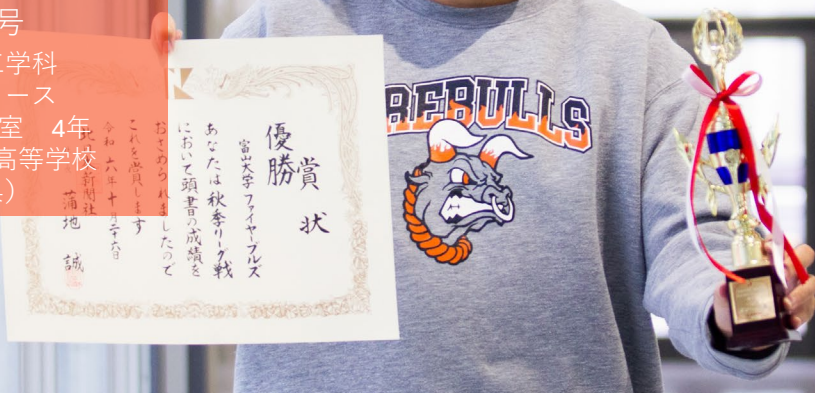 号
学科
ース
室　4年
高等学校
）
賞状
優勝
富山大学 ファイヤーブルズ
あなたは秋季リーグ戦
において頭書の成績を
おさめられましたので
これを賞します
令和六年十月二十六日
新聞社
蒲地 誠
REBULLS